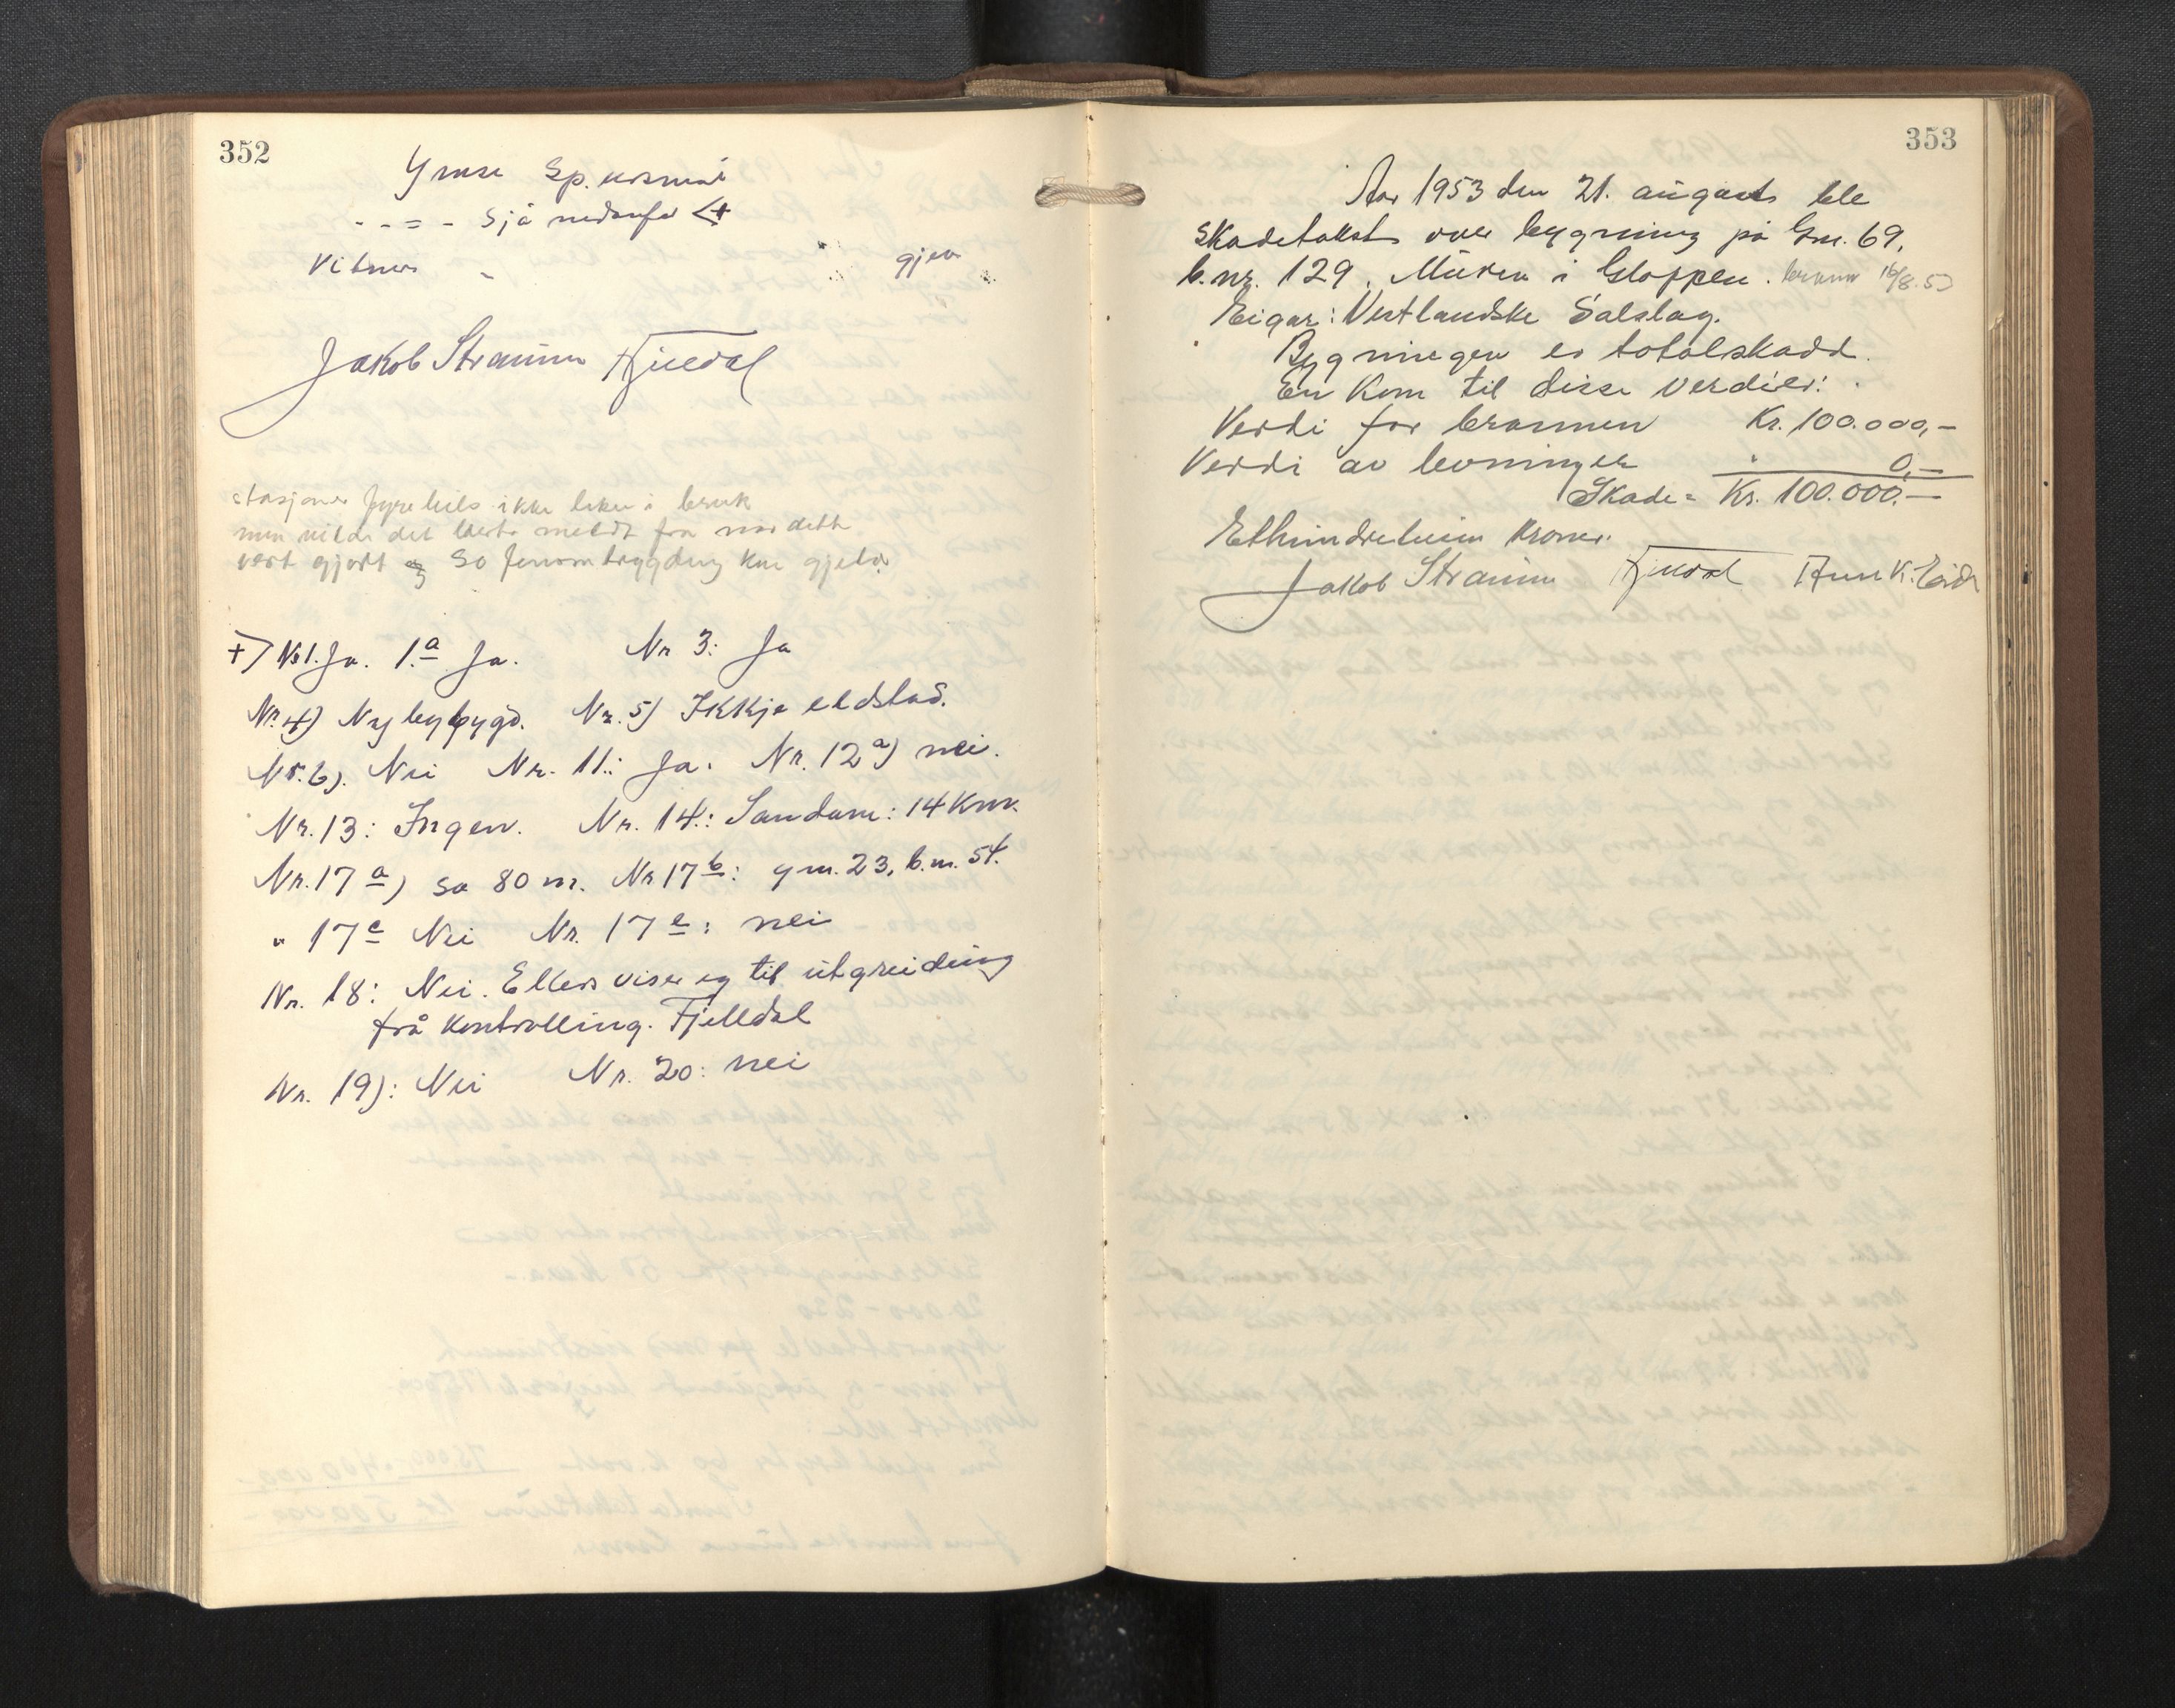 352
Ymse Sp.ursmål
- - = - Sjå nedanfor <+
Vitner - gjev
Jakob Straume Fjelldal
stasjoner fyrebils ikkje i bruk
men vil det verta meldt fra når dette
vert gjort og so
+) Nr 1. Ja. 1.a Ja. Nr 3: Ja
Nr. 4) Nybygd. Nr. 5) Ikkje eldstad.
Nr. 6). Nei Nr. 11.: Ja. Nr. 12 a) nei.
Nr. 13: Ingen. Nr. 14.: Sandane: 14 Km.
Nr. 17 a) sa 80 m. Nr 17 b: gnr. 23, b.nr. 54.
" 17 c Nei Nr. 17 e: nei
Nr. 18: Nei. Ellers viser eg til utgreiding
frå Kontrolling. Fjelldal
Nr. 19): Nei Nr. 20: nei
353
Aar 1953 den 21. august ble
skadetakst over bygning på Gnr. 69,
b.nr. 129, i Gloppen. brann 16/8.53
Eigar: Vestlandske Salslag.
Bygningen er totalskadd.
En kom til disse verdier:
Verdi før brannen Kr. 100.000,-
Verdi av levninger " 0,-
Skade = Kr. 100.000.-
Etthundretusen kroner.
Jakob Straume Fjelldal K. Eide